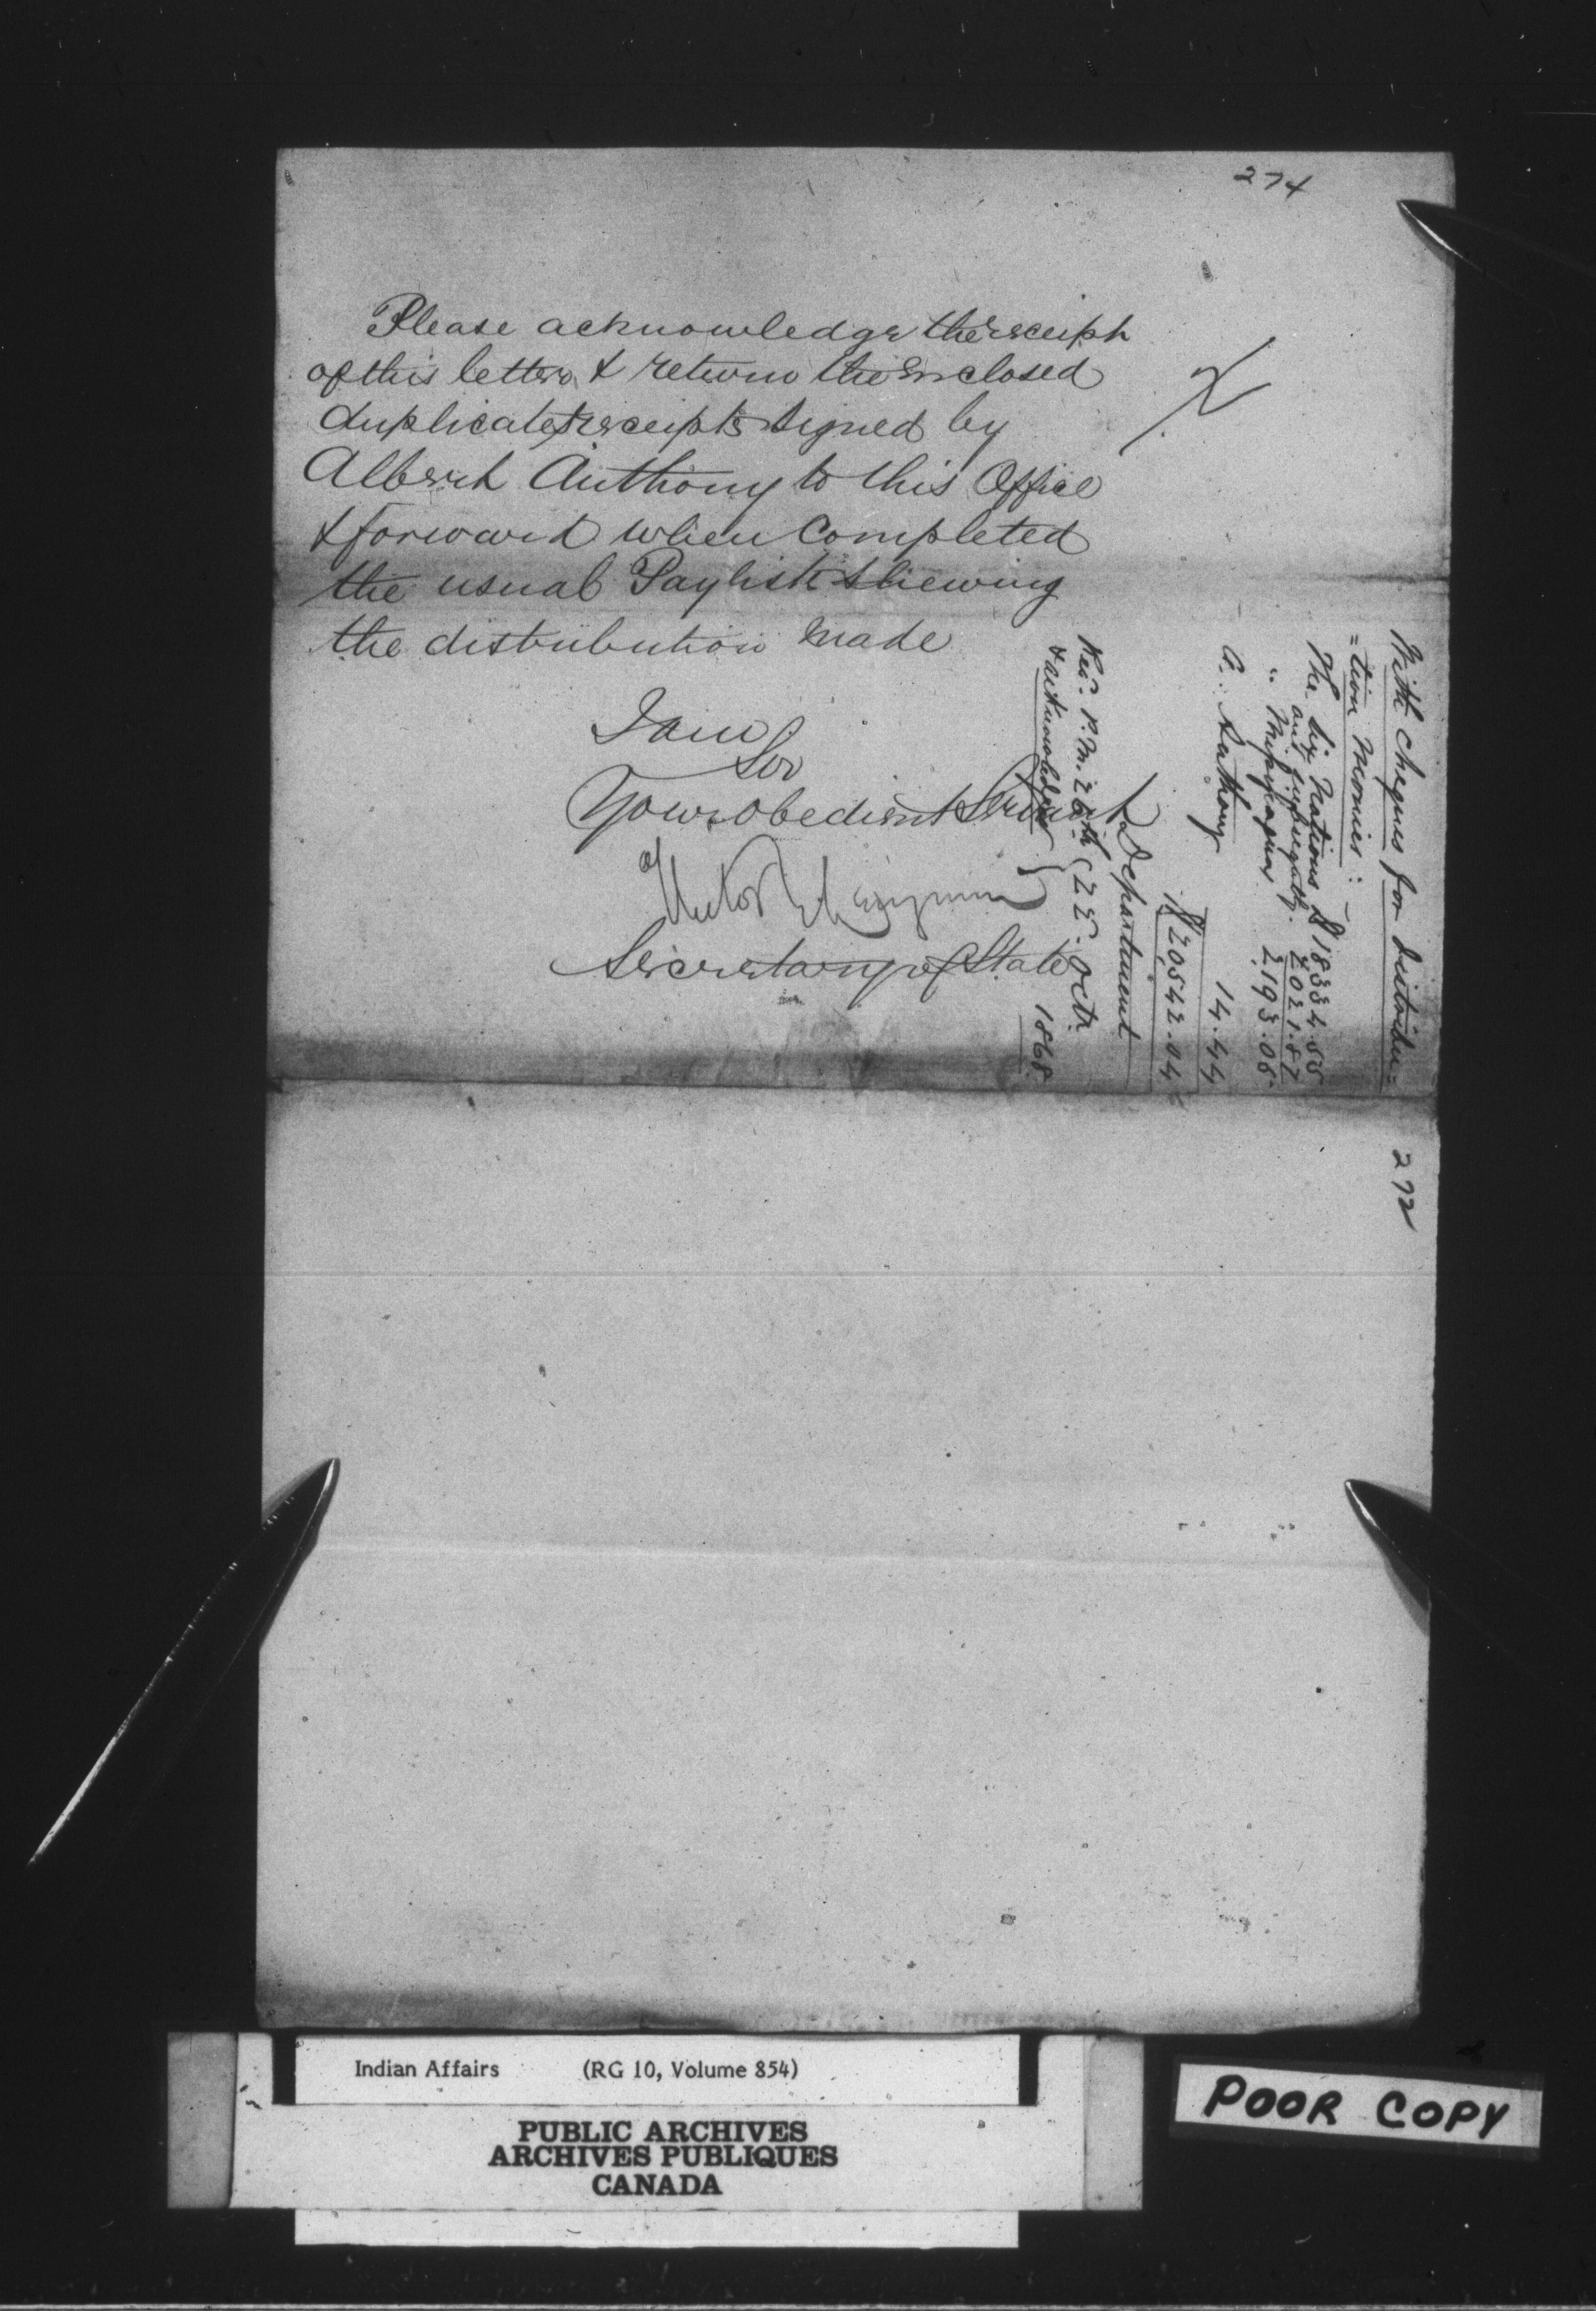 274
Please acknowledge the receipt
of this letter & return the enclosed
duplicate receipts signed by
Albert Anthony to this Office
& forward when Completed
the usual Paylist shewing
the distribution made
I am
Sir
Your obedient Servant
Hector L. Langevin
Secretary of State
With cheques for distribu=
=tion monies:
The Six Nations $18334.55
2021.87
" Mississaguas 2193.05
A. Anthony 14.44
$20542.04
Department
Rec'd. P.M. 26th (22. Octr.
& acknowledged } 1868
272
Indian Affairs (RG 10, Volume 854)
PUBLIC ARCHIVES
ARCHIVES PUBLIQUES
CANADA
POOR COPY